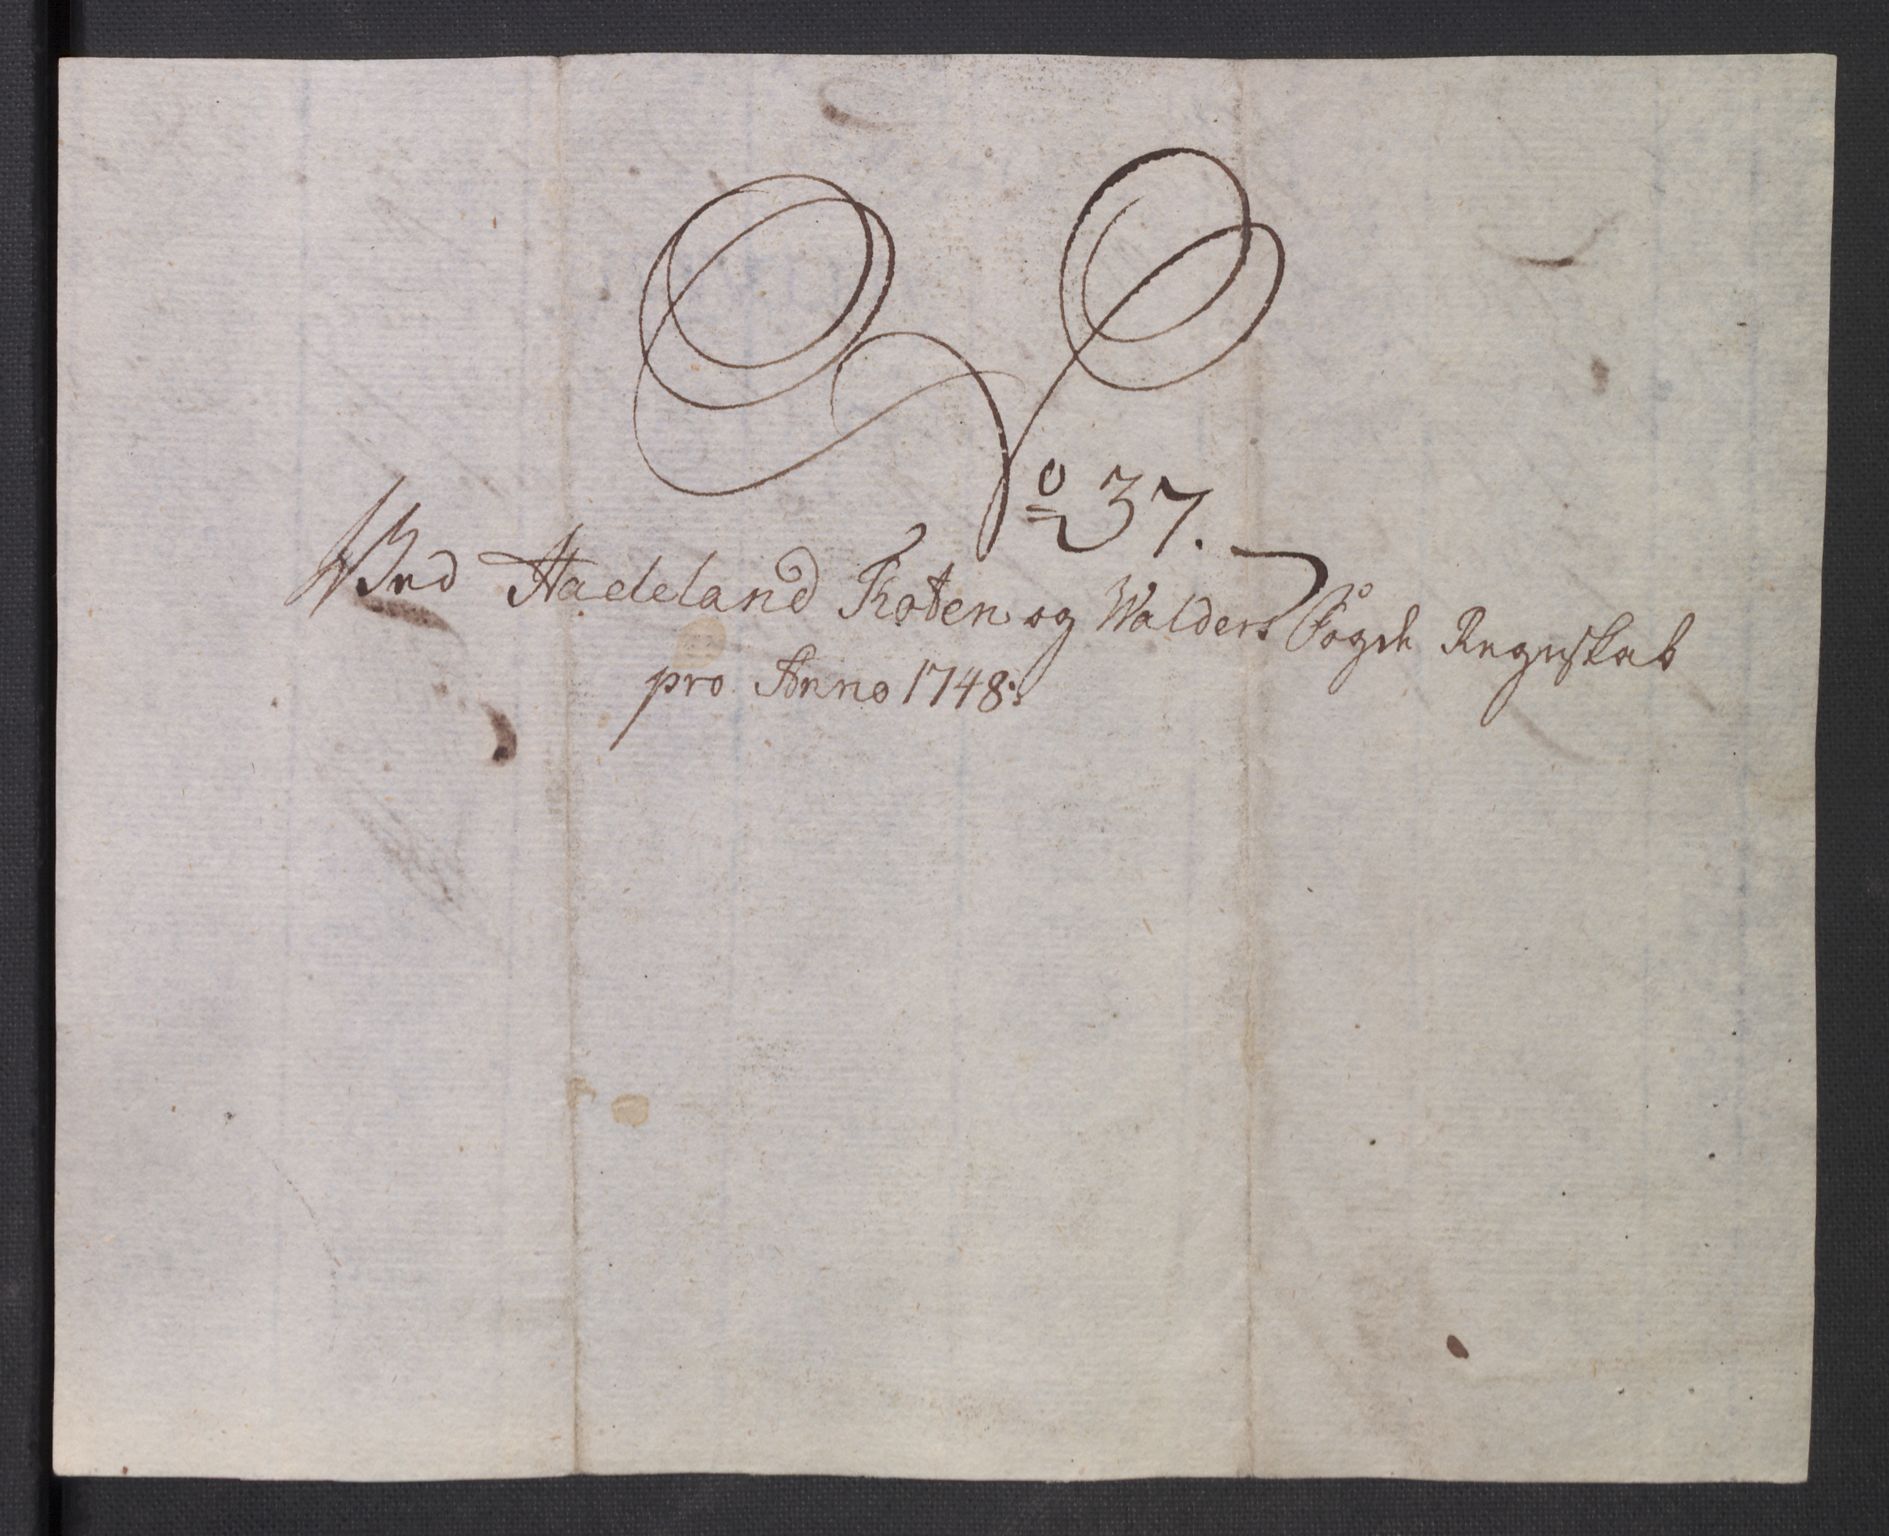 No 37.
Ved Hadeland Thoten og Walders Fogde Regnskab
pro Anno 1748.